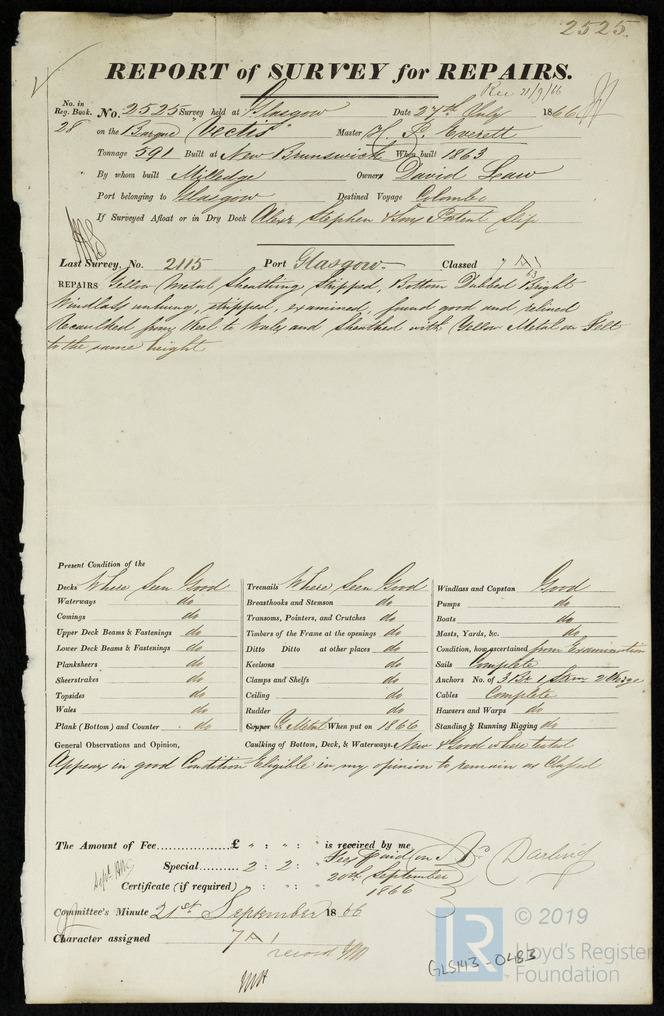 2525.
REPORT of SURVEY for REPAIRS.
Rec 21/9/66
No. in Reg. Book. No. 2525 Survey held at Glasgow Date 27th July 1866
28 on the Barque "Vectis" Master H. P. Everett
Tonnage 591 Built at New Brunswick When built 1863
By whom built Milledge Owners David Law
Port belonging to Glasgow Destined Voyage Colombo
If Surveyed Afloat or in Dry Dock Alexr Stephen & Sons Patent Slip
Last Survey, No. 2115 Port Glasgow. Classed 7 A 1
63
REPAIRS Yellow Metal Sheathing Stripped, Bottom Dubbed Bright
Windlass unhung, stripped, examined, found good and relined
Recaulked from Keel to Wales and sheathed with Yellow Metal on Felt
to the same height
Present Condition of the
Decks Where Seen Good
Waterways do
Comings do
Upper Deck Beams & Fastenings do
Lower Deck Beams & Fastenings do
Planksheers do
Sheerstrakes do
Topsides do
Wales do
Plank (Bottom) and Counter do
Treenails Where Seen Good
Breasthooks and Stemson do
Transoms, Pointers, and Crutches do
Timbers of the Frame at the openings do
Ditto Ditto at other places do
Keelsons do
Clamps and Shelfs do
Ceiling do
Rudder do
Copper Y. Metal When put on 1866
Windlass and Capstan Good
Pumps do
Boats do
Masts, Yards, &c. do
Condition, how ascertained from Examination
Sails Complete
Anchors No. of 3 Br 1 Strm 2 Kedge
Cables Complete
Hawsers and Warps do
Standing & Running Rigging do
General Observations and Opinion, Caulking of Bottom, Deck, & Waterways. New & Good where tested
Appears in good Condition Eligible in my opinion to remain as Classed
The Amount of Fee £ " : " : " is received by me,
Special 2 : 2 : " Fees paid on
Certificate (if required) " : " : " 20th September
1866
Darling
Committee's Minute 21st September 1866
Character assigned 7 A 1
record
© 2019
LR
Lloyd's Register
Foundation
GLS143-0483